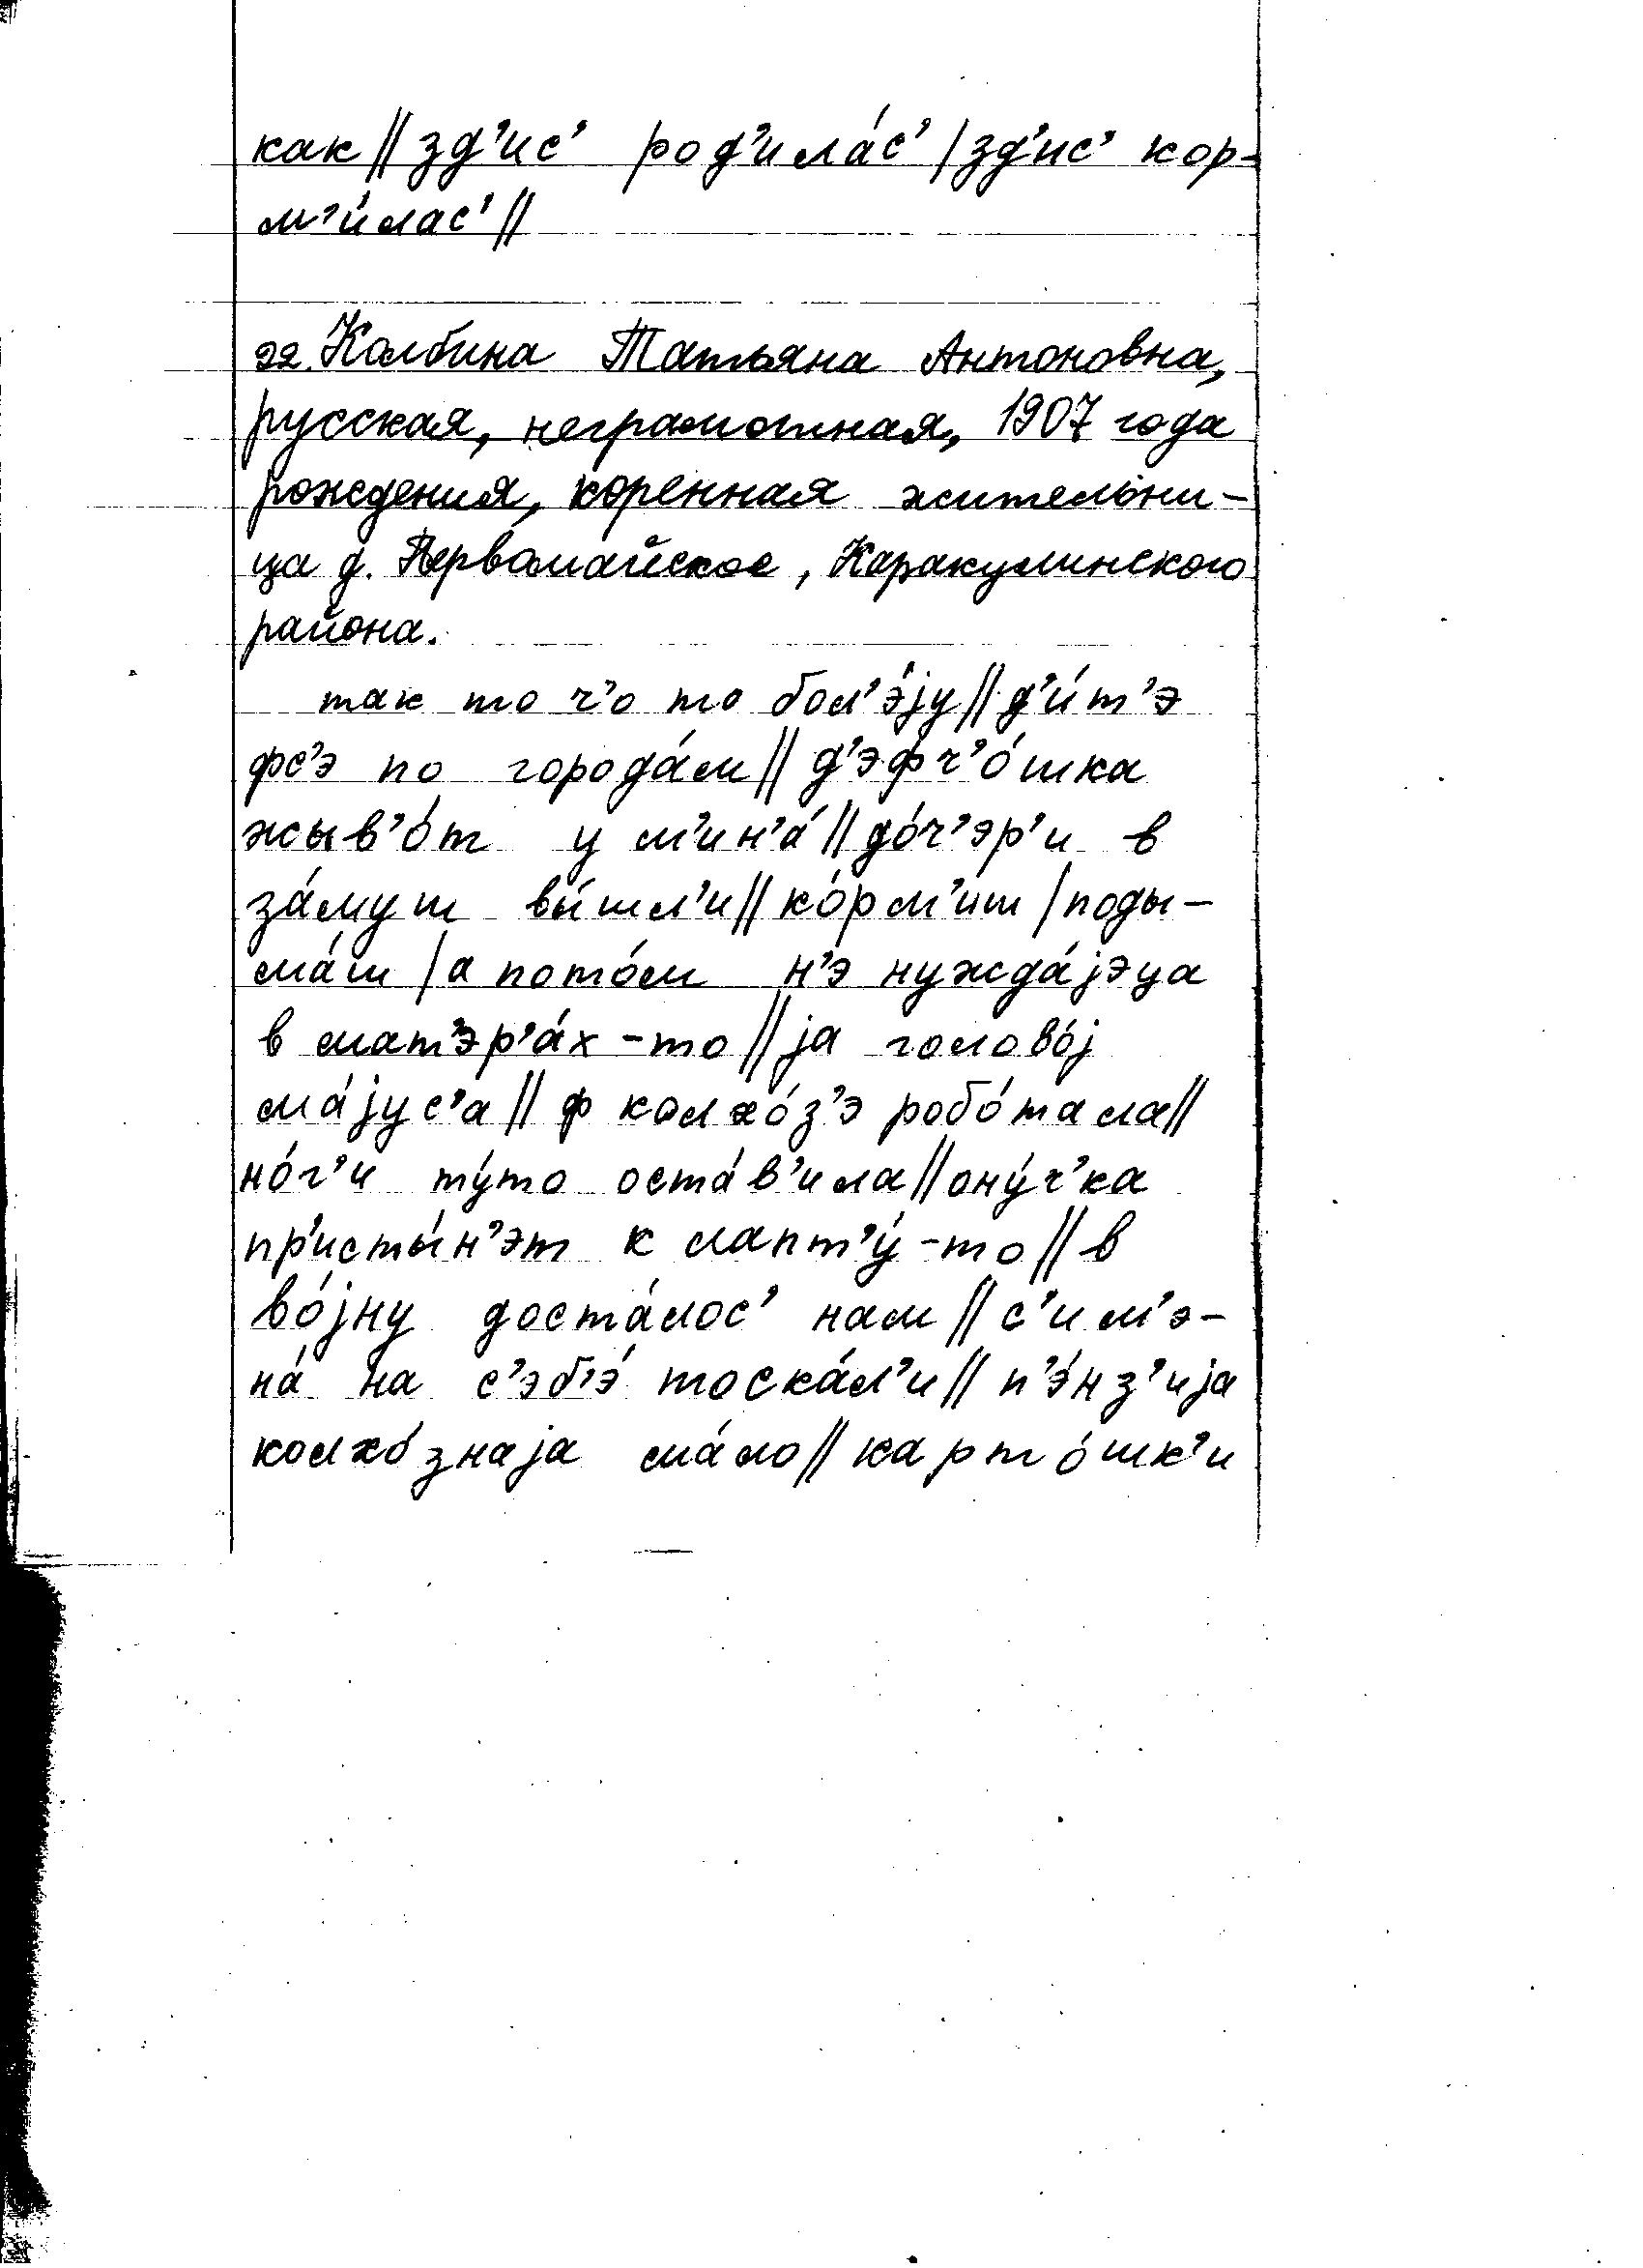 как || зд’ис’ род’ила́с’ | зд’ис’ кор-
м’и́лас’ ||
22. Колбина Татьяна Антоновна,
русская, неграмотная, 1907 года
рождения, коренная жительни-
ца д. Первомайское, Каракулинского
района.
так то ч’о то бол’э́jу || д’и́т’э
фс’э по города́м || д’эфч’о́шка
жыв’о́т у м’ин’а́ || до́ч’эр’и в
за́муш вы́шл’и || ко́рм’иш | поды-
ма́ш | а пото́м н’э нужда́jэца
в мат’эр’а́х-то || jа голово́j
ма́jус’а || ф колхо́з’э робо́тала ||
но́г’и ту́то оста́в’ила || ону́ч’ка
присты́н’эт к лапт’у́-то || в
во́jну доста́лос’ нам || с’им’э-
на́ на с’эб’э́ тоска́л’и || п’э́нз’иjа
колхо́знаjа ма́ло || карто́шк’и